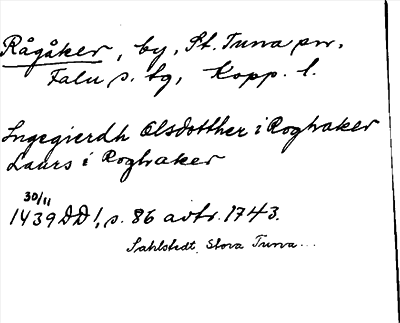 Rågåker, by, St. Tuna sn,
Falu s. tg, Kopp. l.
Ingegierdh Olsdotther i Roghaker
Laurs i Roghaker
30/11
1439 DD 1, s. 86 avtr. 1743.
Sahlstedt, Stora Tuna...